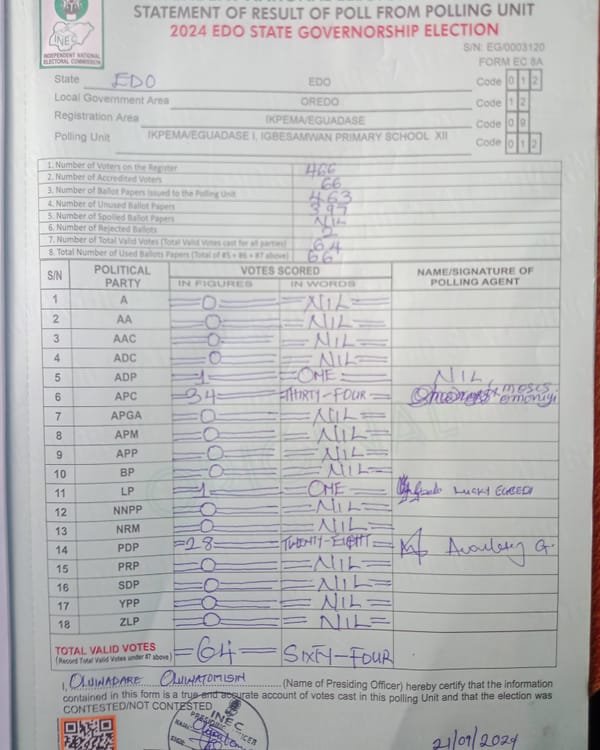 STATEMENT OF RESULT OF POLL FROM POLLING UNIT
2024 EDO STATE GOVERNORSHIP ELECTION
INEC
INDEPENDENT NATIONAL ELECTORAL COMMISSION
S/N: EG/0003120
FORM EC 8A
State EDO EDO Code 0 1 2
Local Government Area OREDO Code 1 2
Registration Area IKPEMA/EGUADASE Code 0 9
Polling Unit IKPEMA/EGUADASE I, IGBESAMWAN PRIMARY SCHOOL XII Code 0 1 2
1. Number of Voters on the Register 466
2. Number of Accredited Voters 66
3. Number of Ballot Papers Issued to the Polling Unit 463
4. Number of Unused Ballot Papers 397
5. Number of Spoiled Ballot Papers NIL
6. Number of Rejected Ballots 2
7. Number of Total Valid Votes (Total Valid Votes cast for all parties) 64
8. Total Number of Used Ballots Papers (Total of #5 + #6 + #7 above) 66
S/N POLITICAL PARTY VOTES SCORED NAME/SIGNATURE OF POLLING AGENT
IN FIGURES IN WORDS
1 A =0= =NIL=
2 AA =0= =NIL=
3 AAC =0= =NIL=
4 ADC =0= =NIL=
5 ADP =1= =ONE= NIL
6 APC =34= =THIRTY-FOUR= moses omoniyi
7 APGA =0= =NIL=
8 APM =0= =NIL=
9 APP =0= =NIL=
10 BP =0= =NIL=
11 LP =1= =ONE= LUCKY EGBEDI
12 NNPP =0= =NIL=
13 NRM =0= =NIL=
14 PDP =28= TWENTY-EIGHT=
15 PRP =0= =NIL=
16 SDP =0= =NIL=
17 YPP =0= =NIL=
18 ZLP =0= =NIL=
TOTAL VALID VOTES =64= SIXTY-FOUR
(Record Total Valid Votes under #7 above)
I, OLUWADARE OLUWATOMISIN (Name of Presiding Officer) hereby certify that the information
contained in this form is a true and accurate account of votes cast in this polling Unit and that the election was
CONTESTED/NOT CONTESTED
INEC
PRESIDING OFFICER
21/09/2024